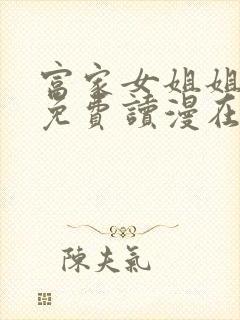 富家女姐姐
免費讀漫在
陳夫氣